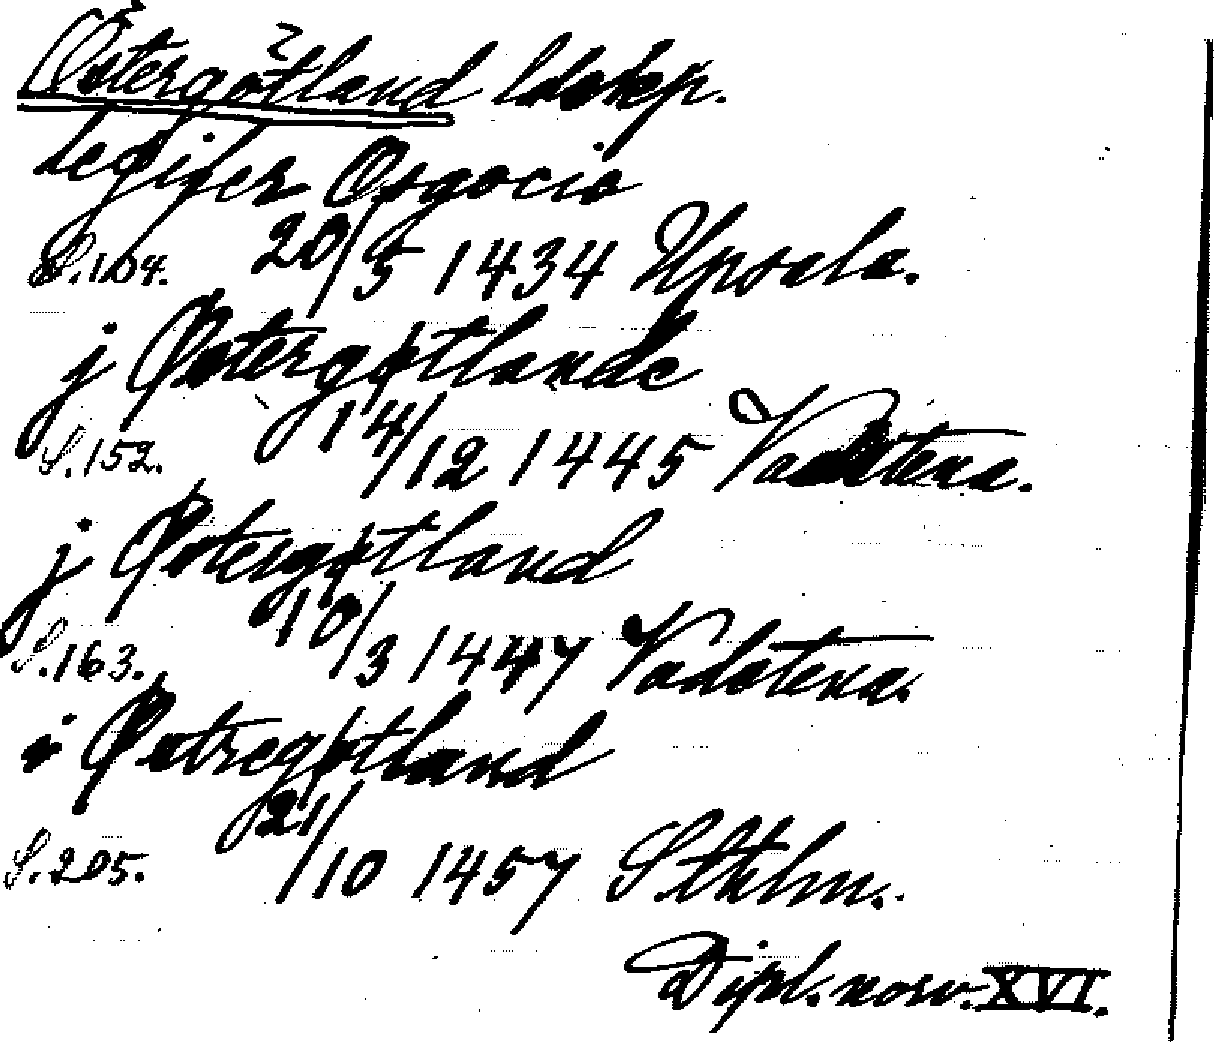 Östergötland ldskp.
legifer Osgocie
S.164. 20/5 1434 Upsala.
j Østergøtlande
S.152. 14/12 1445 Vadstena.
j Østergøtland
S.163. 10/3 1447 Vadstena.
i Østregøtland
S.205. 21/10 1457 Sthlm.
Dipl. norv. XVI.